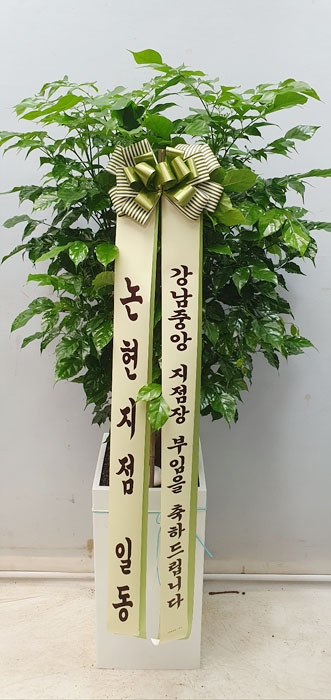 논현지점 일동
강남중앙 지점장 부임을 축하드립니다